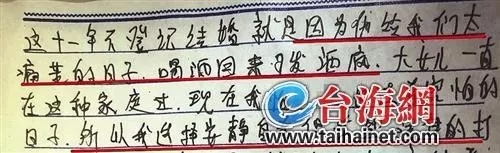 这十一年不登记结婚就是因为你给我们太
痛苦的日子.喝酒因来习发洒底.大女儿一直
在这种家庭过.现在我 怕的
日子.所以我选择安静的 的打
台海网
www.taihainet.com